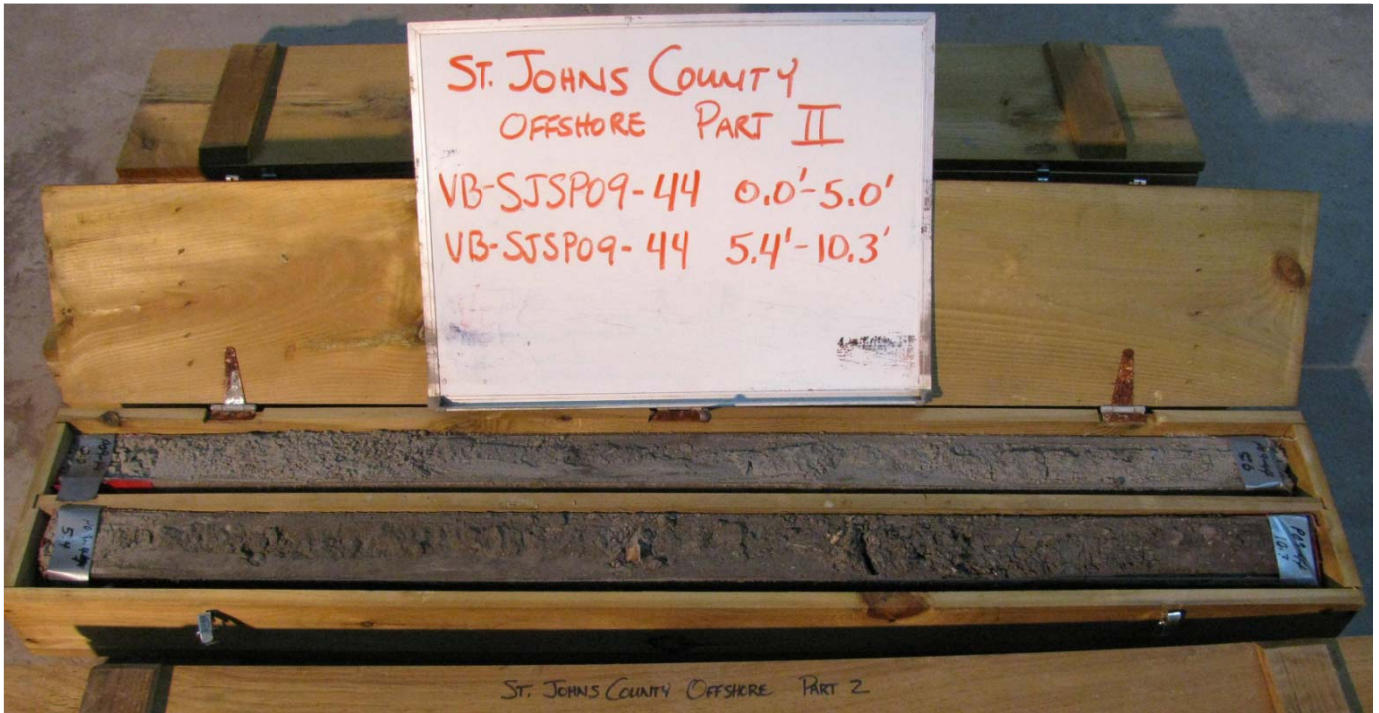 ST. JOHNS COUNTY
OFFSHORE PART II
VB-SJSP09-44 0.0'-5.0'
VB-SJSP09-44 5.4'-10.3'
5.4
ST. JOHNS COUNTY OFFSHORE PART 2